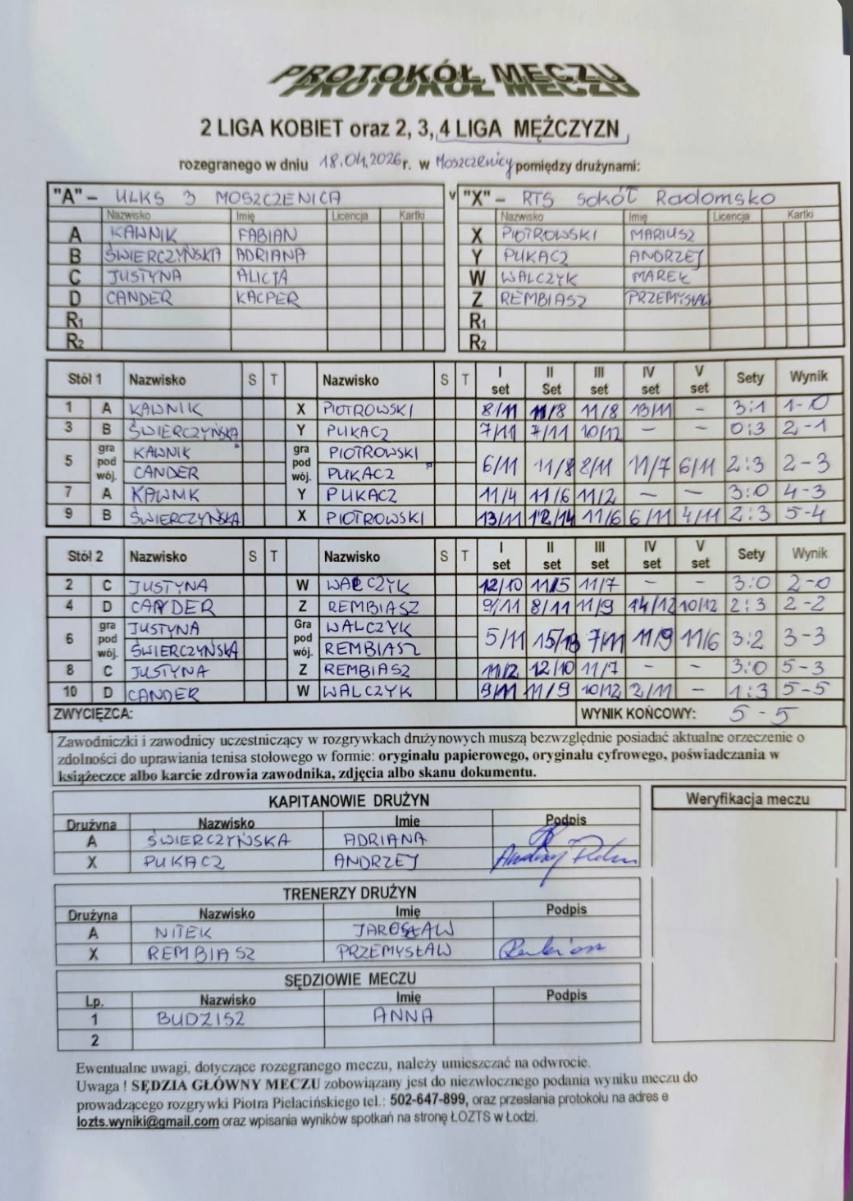 PROTOKÓŁ MECZU
2 LIGA KOBIET oraz 2, 3, 4 LIGA MĘŻCZYZN
rozegranego w dniu 18.04.2026 r. w Moszczenicy pomiędzy drużynami:
"A" – ULKS 3 MOSZCZENICA v "X" – RTS Sokół Radomsko
Nazwisko Imię Licencja Kartki Nazwisko Imię Licencja Kartki
A KAWNIK FABIAN X PIOTROWSKI MARIUSZ
B ŚWIERCZYŃSKA ADRIANA Y PUKACZ ANDRZEJ
C JUSTYNA ALICJA W WALCZYK MAREK
D CANDER KACPER Z REMBIASZ PRZEMYSŁAW
R1 R1
R2 R2
Stół 1 Nazwisko S T Nazwisko S T I set II Set III set IV set V set Sety Wynik
1 A KAWNIK X PIOTROWSKI 8/11 11/8 11/8 13/11 – 3:1 1-0
3 B ŚWIERCZYŃSKA Y PUKACZ 7/11 7/11 10/12 – – 0:3 2-1
5 gra pod wój. KAWNIK gra pod wój. PIOTROWSKI
CANDER PUKACZ 6/11 11/8 8/11 11/7 6/11 2:3 2-3
7 A KAWNIK Y PUKACZ 11/4 11/6 11/2 – – 3:0 4-3
9 B ŚWIERCZYŃSKA X PIOTROWSKI 13/11 12/14 11/6 6/11 4/11 2:3 5-4
Stół 2 Nazwisko S T Nazwisko S T I set II set III set IV set V set Sety Wynik
2 C JUSTYNA W WALCZYK 12/10 11/5 11/7 – – 3:0 2-0
4 D CANDER Z REMBIASZ 9/11 8/11 11/9 14/12 10/12 2:3 2-2
6 gra pod wój. JUSTYNA Gra pod wój. WALCZYK
ŚWIERCZYŃSKA REMBIASZ 5/11 15/13 7/11 11/9 11/6 3:2 3-3
8 C JUSTYNA Z REMBIASZ 11/2 12/10 11/7 – – 3:0 5-3
10 D CANDER W WALCZYK 9/11 11/9 10/12 2/11 – 1:3 5-5
ZWYCIĘZCA: WYNIK KOŃCOWY: 5-5
Zawodniczki i zawodnicy uczestniczący w rozgrywkach drużynowych muszą bezwzględnie posiadać aktualne orzeczenie o
zdolności do uprawiania tenisa stołowego w formie: oryginału papierowego, oryginału cyfrowego, poświadczania w
książeczce albo karcie zdrowia zawodnika, zdjęcia albo skanu dokumentu.
KAPITANOWIE DRUŻYN Weryfikacja meczu
Drużyna Nazwisko Imię Podpis
A ŚWIERCZYŃSKA ADRIANA
X PUKACZ ANDRZEJ
TRENERZY DRUŻYN
Drużyna Nazwisko Imię Podpis
A NITEK JAROSŁAW
X REMBIASZ PRZEMYSŁAW
SĘDZIOWIE MECZU
Lp. Nazwisko Imię Podpis
1 BUDZISZ ANNA
2
Ewentualne uwagi, dotyczące rozegranego meczu, należy umieszczać na odwrocie.
Uwaga ! SĘDZIA GŁÓWNY MECZU zobowiązany jest do niezwłocznego podania wyniku meczu do
prowadzącego rozgrywki Piotra Pielacińskiego tel.: 502-647-899, oraz przesłania protokołu na adres e
lozts.wyniki@gmail.com oraz wpisania wyników spotkań na stronę ŁOZTS w Łodzi.